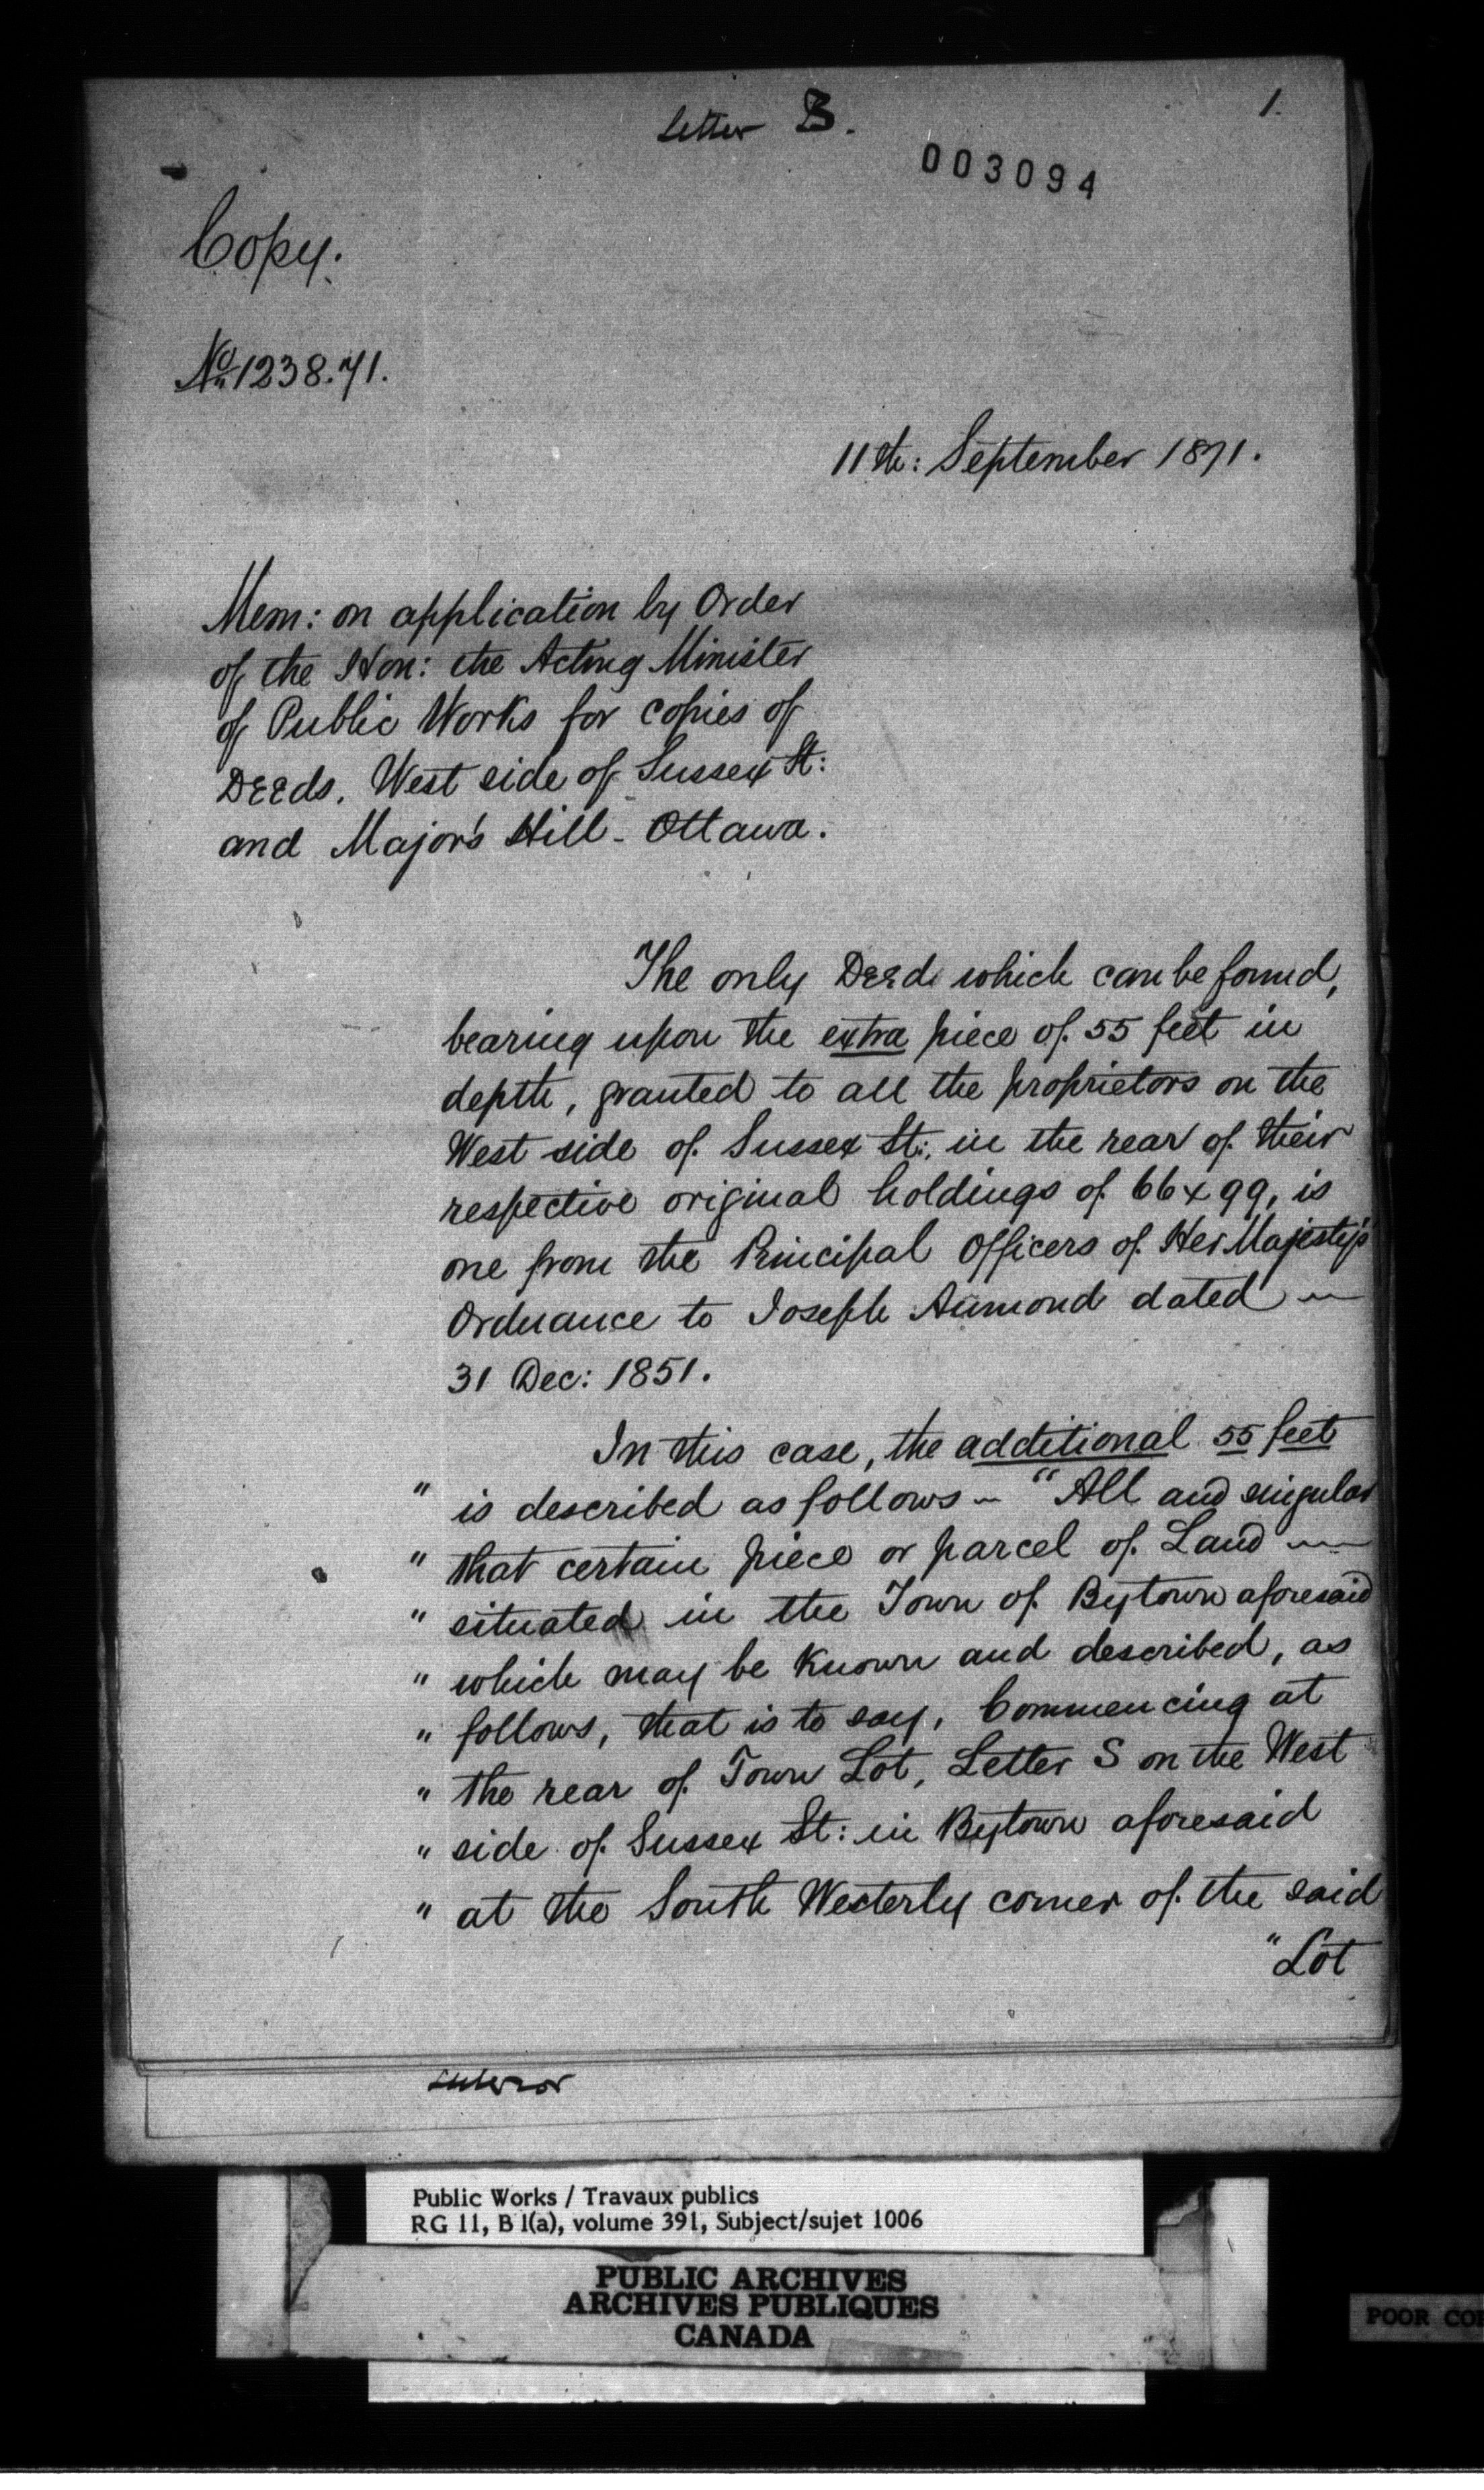 Letter B.
1.
003094
Copy.
No. 1238.71.
11th: September 1871.
Mem: on application by Order
of the Hon: the Acting Minister
of Public Works for copies of
Deeds. West side of Sussex St:
and Major's Hill - Ottawa.
The only Deed which can be found,
bearing upon the extra piece of 55 feet in
depth, granted to all the proprietors on the
West side of Sussex St: in the rear of their
respective original holdings of 66 x 99, is
one from the Principal Officers of Her Majesty's
Ordnance to Joseph Aumond dated —
31 Dec: 1851.
In this case, the additional 55 feet
" is described as follows - "All and singular
" that certain piece or parcel of Land —
" situated in the Town of Bytown aforesaid
" which may be known and described, as
" follows, that is to say, Commencing at
" the rear of Town Lot, Letter S on the West
" side of Sussex St: in Bytown aforesaid
" at the South Westerly corner of the said
"Lot
Public Works / Travaux publics
RG 11, B 1(a), volume 391, Subject/sujet 1006
PUBLIC ARCHIVES
ARCHIVES PUBLIQUES
CANADA
POOR